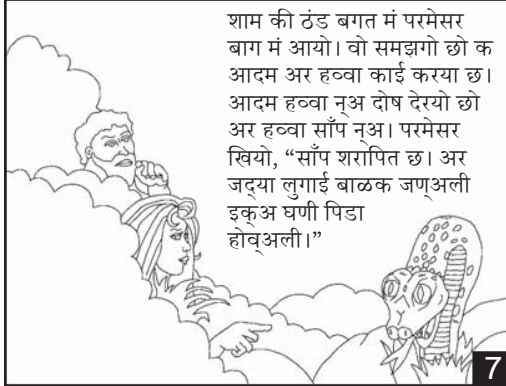 शाम की ठंड बगत मं परमेसर
बाग मं आयो। वो समझगो छो क
आदम अर हव्वा काई करया छ।
आदम हव्वा न्अ दोष देरयो छो
अर हव्वा साँप न्अ। परमेसर
खियो, “साँप शरापित छ। अर
जद्या लुगाई बाळक जण्अली
इक्अ घणी पिडा
होव्अली।”
7